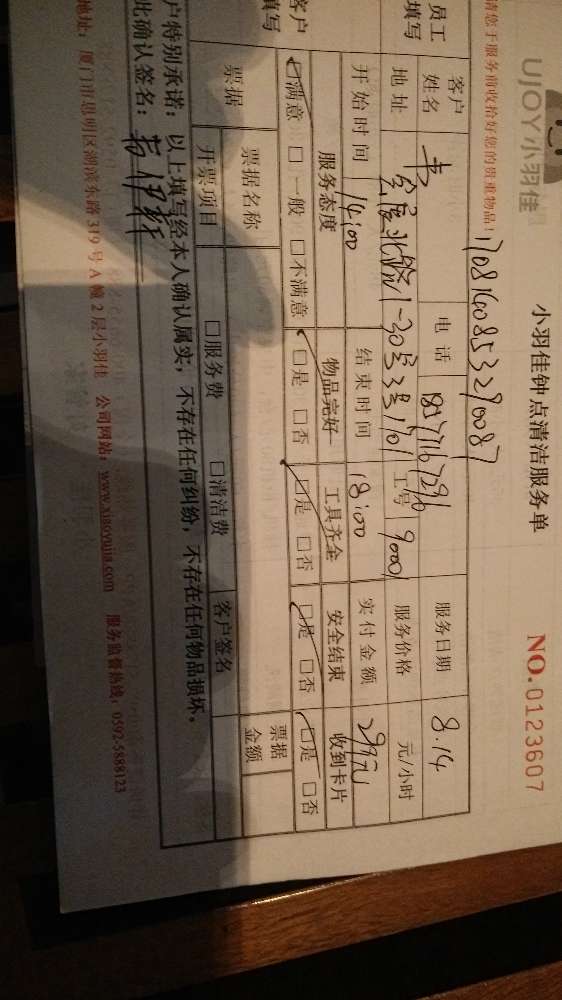 UJOY小羽佳
小羽佳钟点清洁服务单
NO.0123607
请您于服务前收拾好您的贵重物品!
170814085329087
员工
填写
客户
姓名
韦
电话
服务日期
8.14
地址
1-30号3号101
工号
9000
服务价格
元/小时
开始时间
14:00
结束时间
18:00
实付金额
客户
填写
服务态度
物品完好
工具齐全
安全结束
收到卡片
□满意 □一般 □不满意
□是 □否
□是 □否
□是 □否
□是 □否
票据
票据名称
票据
金额
开票项目
□服务费
□清洁费
客户签名
户特别承诺：以上填写经本人确认属实，不存在任何纠纷，不存在任何物品损坏。
此确认签名：韦伊
地址：厦门市思明区湖滨东路319号A幢2层小羽佳 公司网站：www.xiaoyujia.com 服务监督热线：0592-5888123